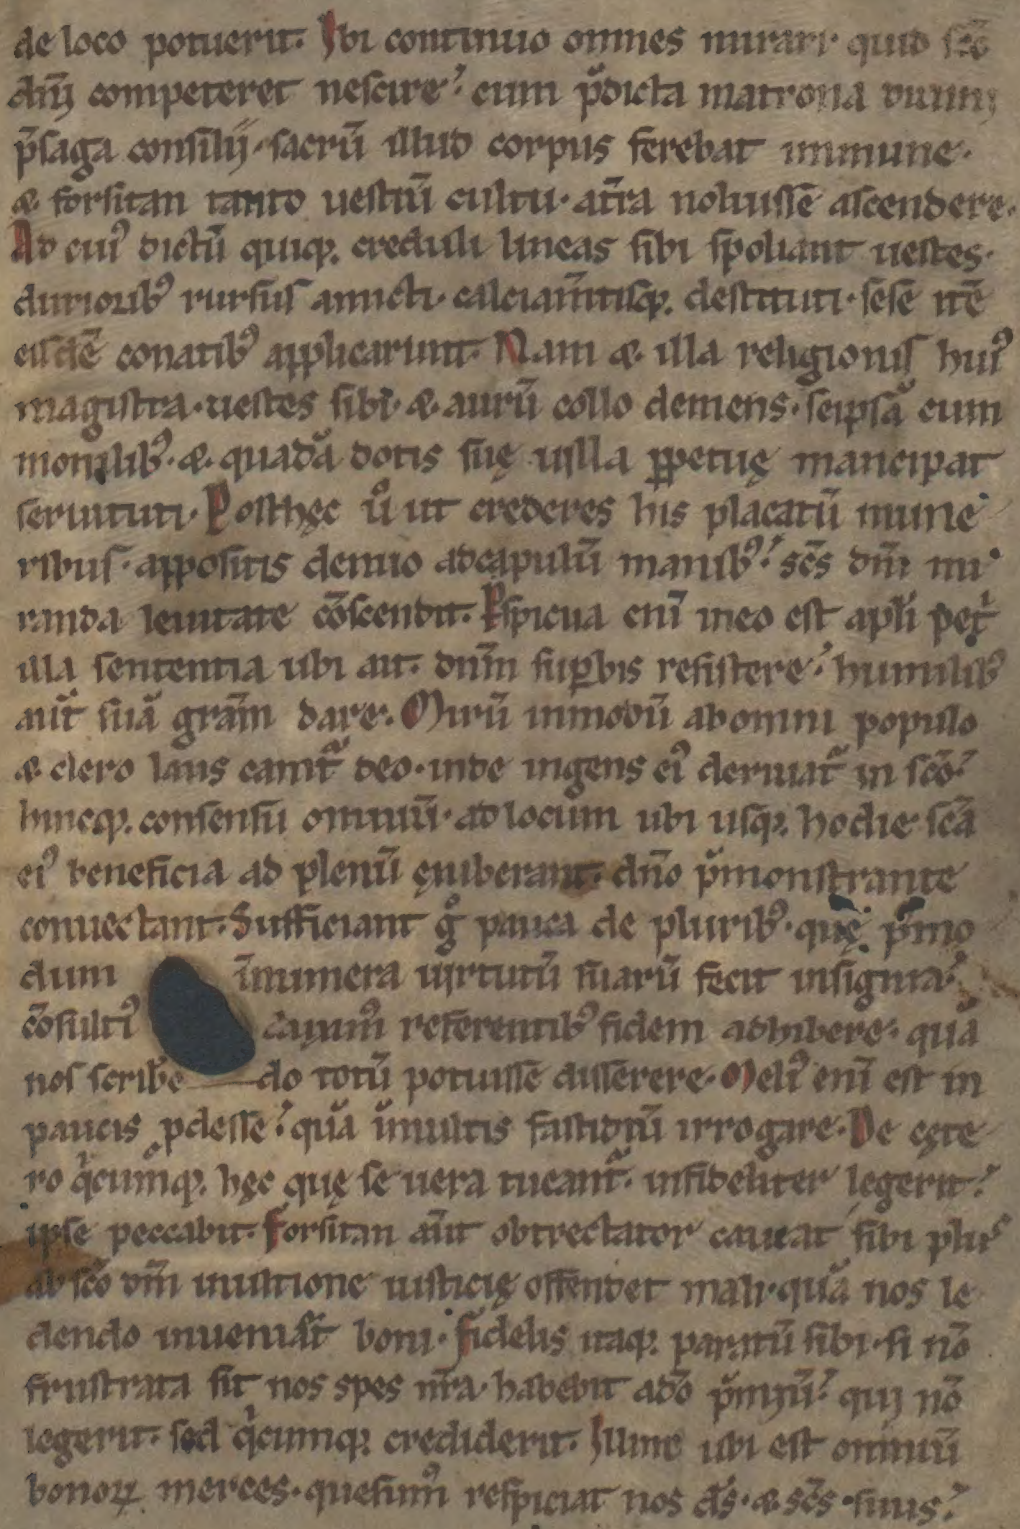 de loco potuerit. Ibi continuo omnes mirari quid scō
dn̄ij competeret nescire. cum p̄dicta matrona diuini
p̄saga consilij. sacrū illud corpus ferebat immune.
& forsitan tanto uestiū cultu. at̄ra noluissē ascendere.
Ad cuiꝰ dictū quiqꝫ creduli lineas sibi spoliant uestes.
durioribꝰ rursus amicti. calciam̄tisqꝫ destituti. sese itē
eisdē conatibꝰ applicarunt. Nam & illa religionis huiꝰ
magistra. uestes sibi. & aurū collo demens. seipsā cum
monilibꝰ. & quadā dotis suę uilla ꝑpetuę mancipat
seruituti. Posthęc ů ut crederes his placatū mune
ribus. appositis denuo adcapulū manibꝰ. scs̄ dn̄i mi
randa leuitate cōscendit. Ꝑspicua eni̅ in eo est apl̄i pet̓
illa sententia ubi ait. dn̄m suꝑbis resistere. humilibꝰ
aut̄ suā gr̄am dare. Mirū inmodū abomni populo
& clero laus canit̄ deo. inde ingens eiꝰ deriuat̄ in scō.
hincqꝫ consensu omniū. ad locum ubi usqꝫ hodie scā
eiꝰ beneficia ad plenū exuberant. dn̄o p̄monstrante
conuectant. Sufficiant gͦ pauca de pluribꝰ. quę p̄mo
dum īnumera uirtutū suarū fecit insignia.
cōsultiꝰ referentibꝰ fidem adhibere. quā
nos scribē do totū potuissē disserere. Meliꝰ eni̅ est in
paucis ꝓdesse. quā īmultis fastidiū irrogare. De cęte
ro qͥcumqꝫ hęc quę se uera tueant̄. infideliter legerit.
ipse peccabit. Forsitan aut̄ obtrectator caueat sibi plus
ab scō dn̄i iniustitię offendet mali. quā nos le
dendo inueniat̄ boni. Fidelis itaqꝫ paratū sibi. si nō
frustrata sit nos spes nr̄a. habebit adō p̄miū. qui nō
legerit. sed qͥcumqꝫ crediderit. Illinc ubi est omniū
bonoꝝ merces. quesumꝰ respiciat nos ds̄. & scs̄ suus.